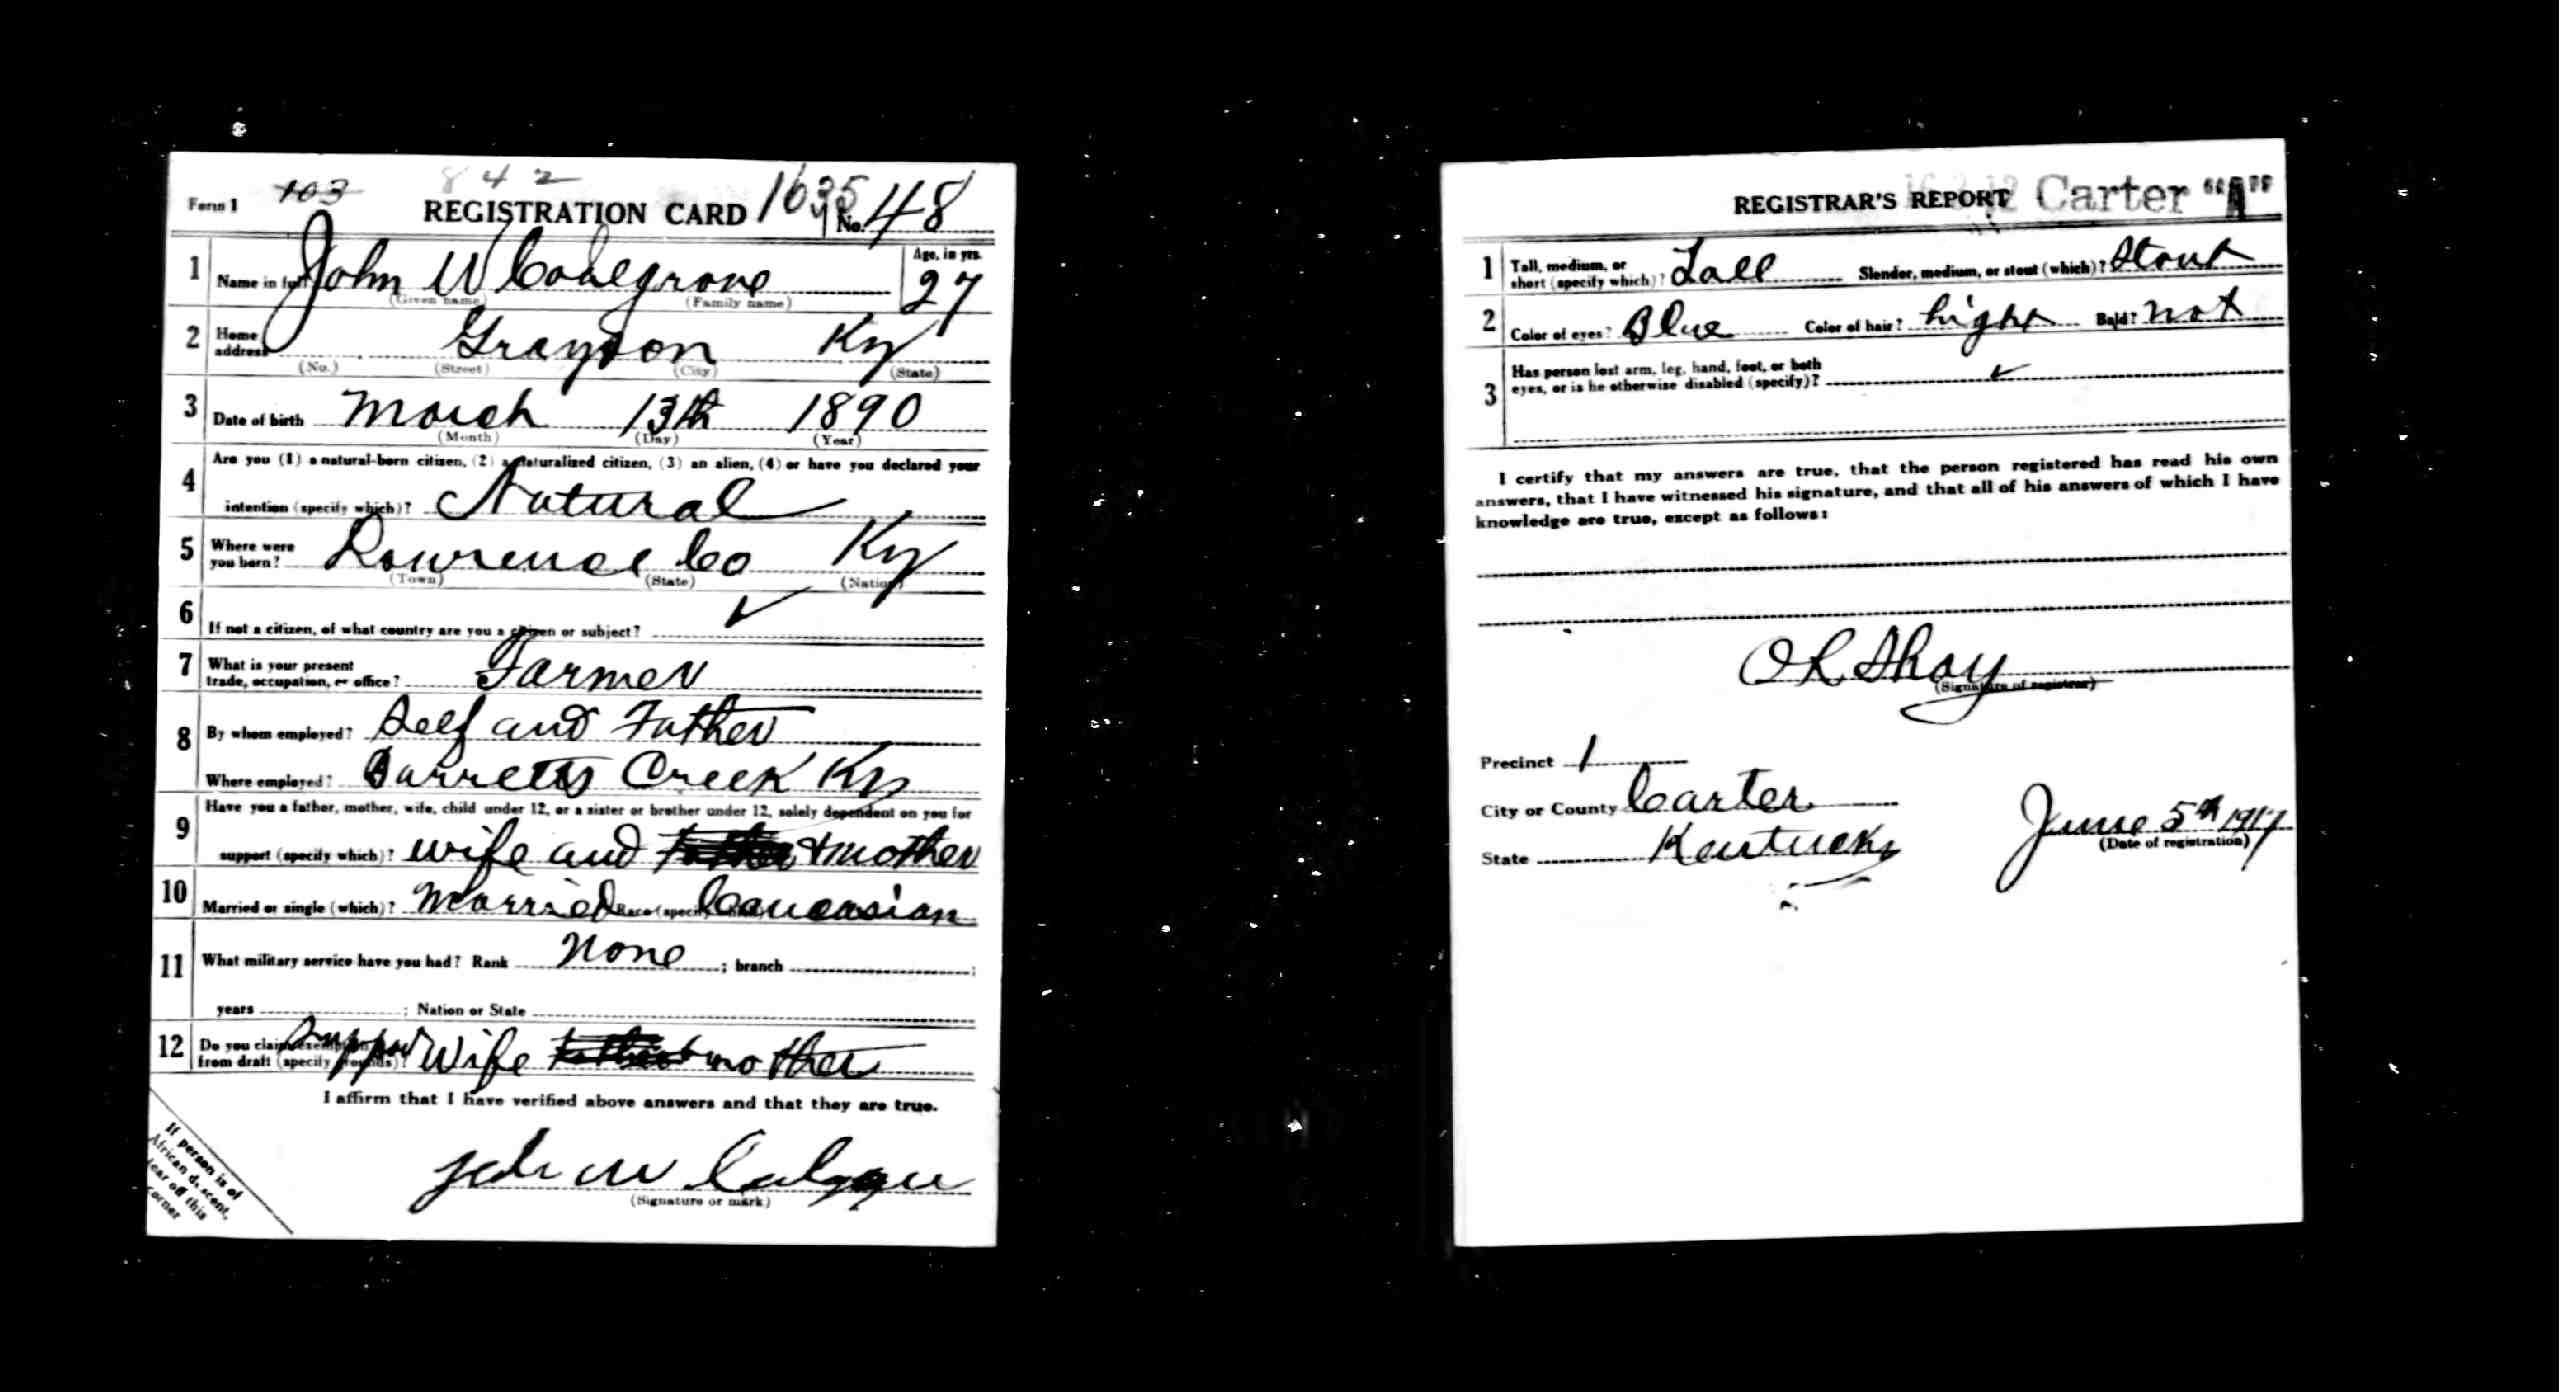 Form 1 103 842 REGISTRATION CARD 1635 No. 48
1 Name in full John W Coalgrove Age, in yrs. 27
(Given name) (Family name)
2 Home address Grayson Ky
(No.) (Street) (City) (State)
3 Date of birth March 13th 1890
(Month) (Day) (Year)
4 Are you (1) a natural-born citizen, (2) a naturalized citizen, (3) an alien, (4) or have you declared your
intention (specify which)? Natural
5 Where were you born? Lawrence Co Ky
(Town) (State) (Nation)
6 If not a citizen, of what country are you a citizen or subject? ✓
7 What is your present
trade, occupation, or office? Farmer
8 By whom employed? Self and Father
Where employed? Barretts Creek Ky
9 Have you a father, mother, wife, child under 12, or a sister or brother under 12, solely dependent on you for
support (specify which)? wife and + mother
10 Married or single (which)? Married Race (specify which)? Caucasian
11 What military service have you had? Rank None ; branch ;
years ; Nation or State
12 Do you claim exemption
from draft (specify grounds)? Support Wife mother
I affirm that I have verified above answers and that they are true.
John W
(Signature or mark)
If person is of
African descent,
tear off this
corner
REGISTRAR'S REPORT Carter "A"
1 Tall, medium, or
short (specify which)? Tall Slender, medium, or stout (which)? Stout
2 Color of eyes? Blue Color of hair? Light Bald? not
3 Has person lost arm, leg, hand, foot, or both
eyes, or is he otherwise disabled (specify)? ✓
I certify that my answers are true, that the person registered has read his own
answers, that I have witnessed his signature, and that all of his answers of which I have
knowledge are true, except as follows:
(Signature of registrar)
Precinct 1
City or County Carter
State Kentucky
June 5th 1917
(Date of registration)